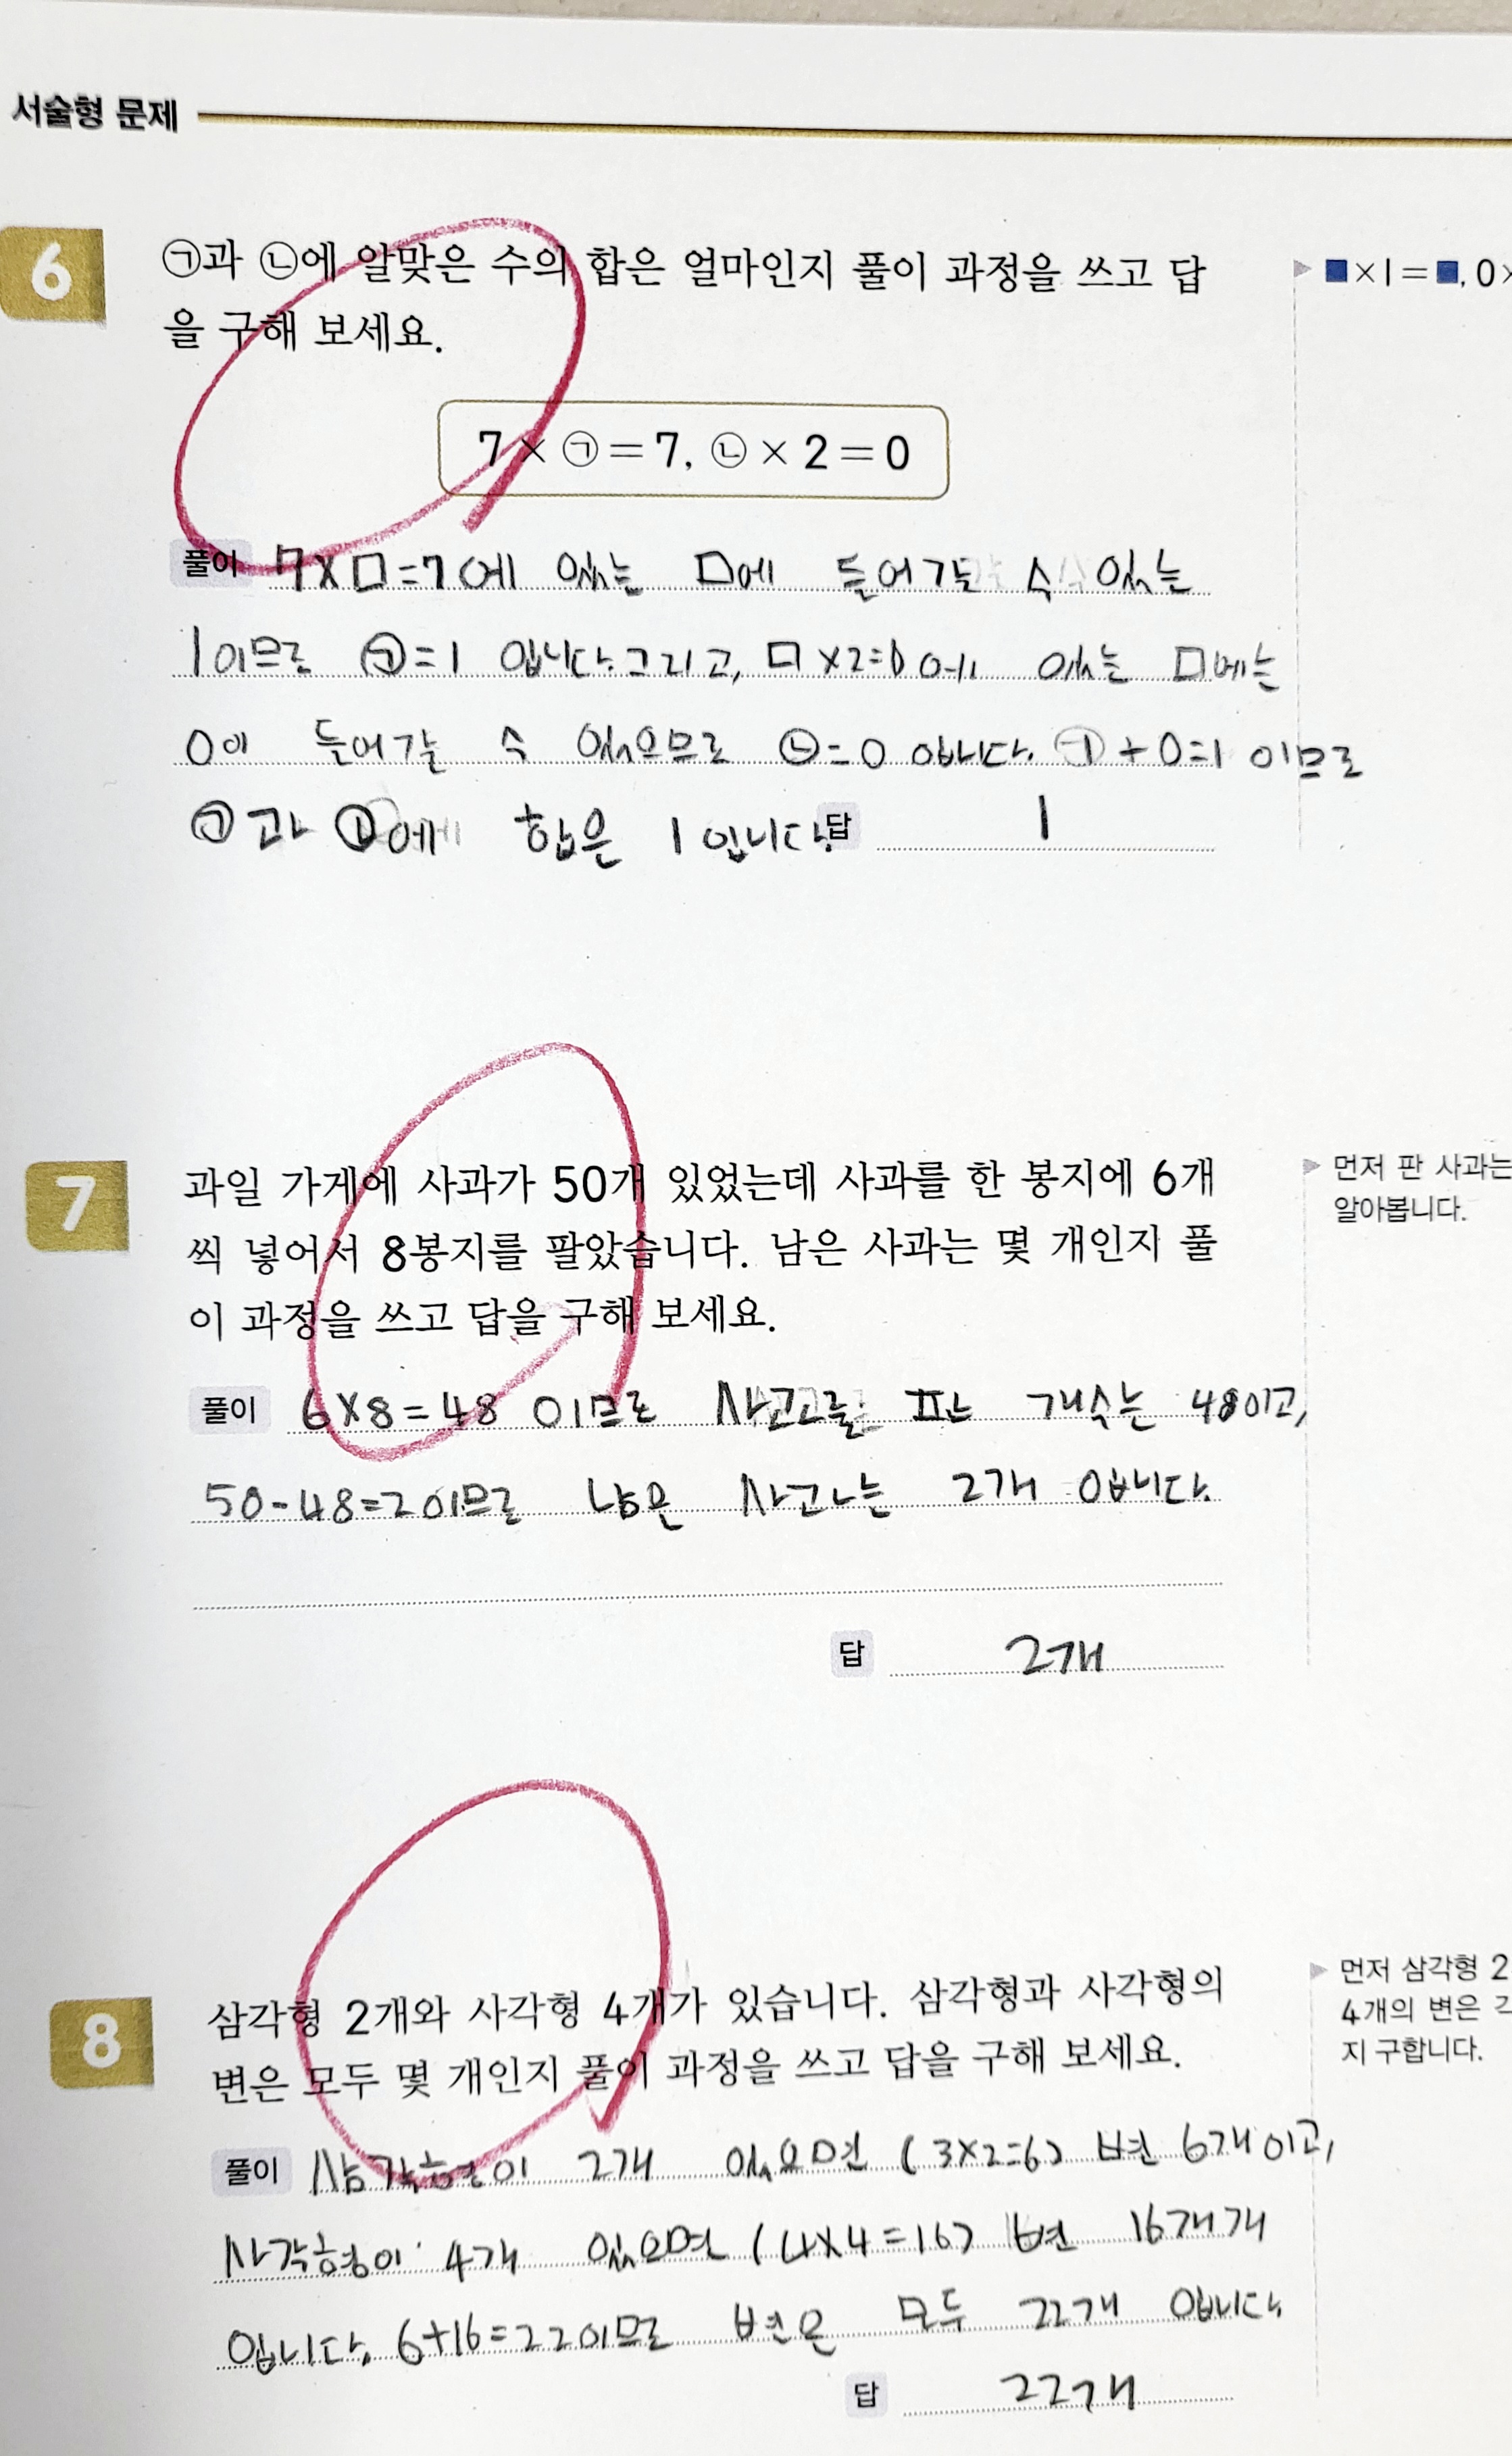 서술형 문제
6
㉠과 ㉡에 알맞은 수의 합은 얼마인지 풀이 과정을 쓰고 답
을 구해 보세요.
■×1=■, 0×
7×㉠=7, ㉡×2=0
풀이 7×□=7에 있는 □에 들어가는 수 있는
1이므로 ㉠=1 입니다. 그리고, □×2=0에 있는 □에는
0이 들어갈 수 있으므로 ㉡=0 입니다. 1+0=1 이므로
㉠과 ㉡에 합은 1 입니다.
답 1
7
과일 가게에 사과가 50개 있었는데 사과를 한 봉지에 6개
씩 넣어서 8봉지를 팔았습니다. 남은 사과는 몇 개인지 풀
이 과정을 쓰고 답을 구해 보세요.
먼저 판 사과는
알아봅니다.
풀이 6×8=48 이므로 사고를 판 개수는 48이고,
50-48=2이므로 남은 사과는 2개 입니다.
답 2개
8
삼각형 2개와 사각형 4개가 있습니다. 삼각형과 사각형의
변은 모두 몇 개인지 풀이 과정을 쓰고 답을 구해 보세요.
먼저 삼각형 2
4개의 변은 각
지 구합니다.
풀이 삼각형이 2개 있으면 (3×2=6) 변 6개이고,
사각형이 4개 있으면 (4×4=16) 변 16개개
입니다. 6+16=22이므로 변은 모두 22개 입니다.
답 22개